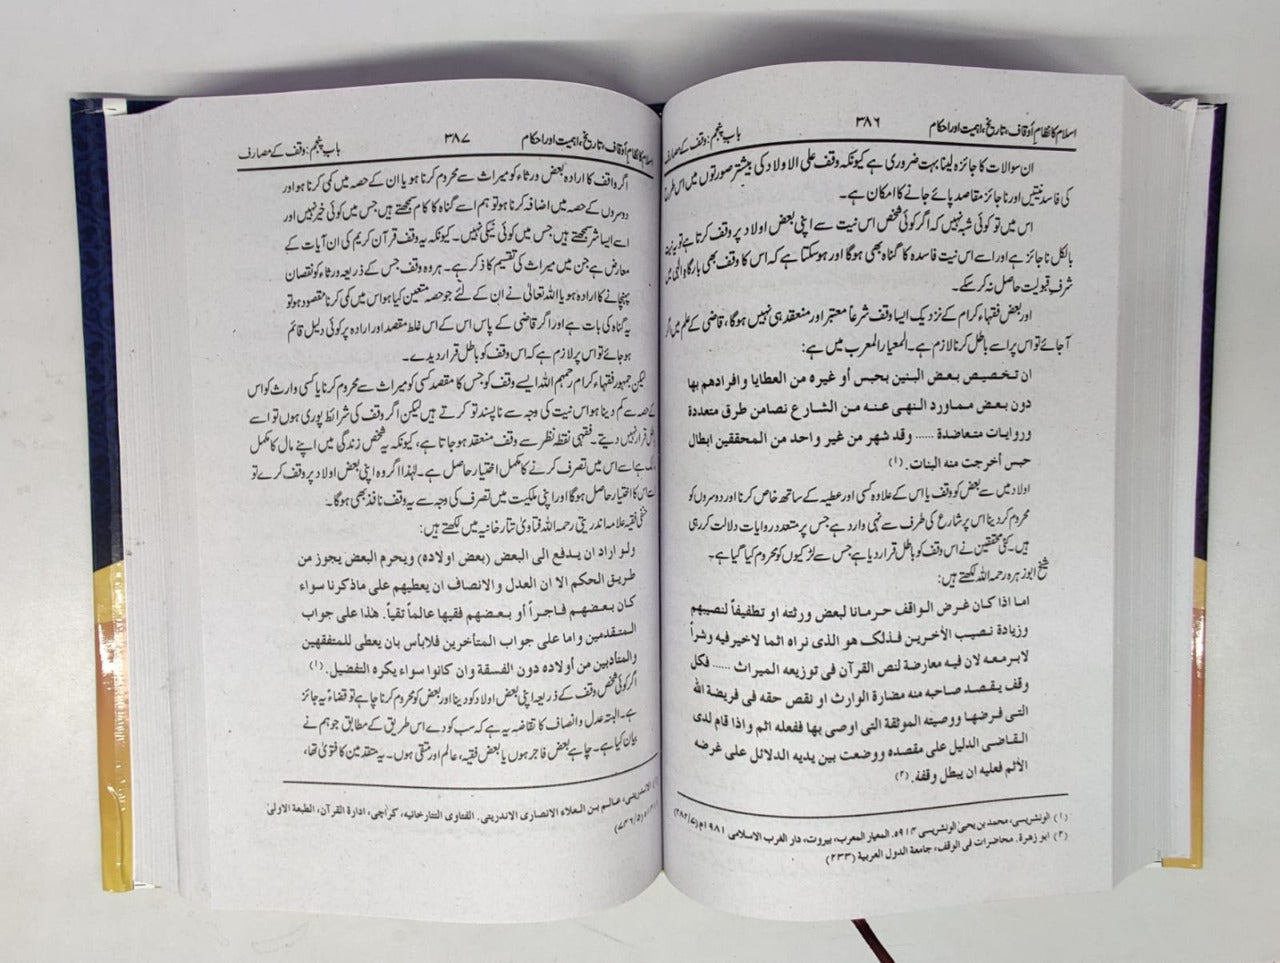 اسلام کا نظامِ اَوقاف، تاریخ، اہمیت اور احکام ۳۸۶ باب پنجم: وقف کے مصارف
ان سوالات کا جائزہ لینا بہت ضروری ہے کیونکہ وقف علی الاولاد کی بیشتر صورتوں میں اس طرح
کی فاسد نیتیں اور ناجائز مقاصد پائے جانے کا امکان ہے۔
اس میں تو کوئی شبہ نہیں کہ اگر کوئی شخص اس نیت سے اپنی بعض اولاد پر وقف کرتا ہے تو یہ نیت
بالکل ناجائز ہے اور اسے اس نیت فاسدہ کا گناہ بھی ہوگا اور ہوسکتا ہے کہ اس کا وقف بھی بارگاہ الٰہی میں
شرف قبولیت حاصل نہ کرسکے۔
اور بعض فقہاء کرام کے نزدیک ایسا وقف شرعاً معتبر اور منعقد ہی نہیں ہوگا، قاضی کے علم میں اگر
آجائے تو اس پر اسے باطل کرنا لازم ہے۔ المعیار المعرب میں ہے:
ان تخصيص بعض البنين بحبس أو غيره من العطايا و افرادهم بها
دون بعض مماورد النهى عنه من الشارع نصامن طرق متعددة
وروايات متعاضدة ...... وقد شهر من غير واحد من المحققين ابطال
حبس أخرجت منه البنات. (۱)
اولاد میں سے بعض کو وقف یا اس کے علاوہ کسی اور عطیہ کے ساتھ خاص کرنا اور دوسروں کو
محروم کردینا اس پر شارع کی طرف سے نہی وارد ہے جس پر متعدد روایات دلالت کررہی
ہیں۔ کئی محققین نے اس وقف کو باطل قرار دیا ہے جس سے لڑکیوں کو محروم کیا گیا ہے۔
شیخ ابوزہرہ رحمہ اللہ لکھتے ہیں:
اما اذا كان غرض الواقف حرمانا لبعض ورثته او تطفيفاً لنصيبهم
وزيادة نصيب الآخرين فذلك هو الذى نراه اثما لاخير فيه وشراً
لابر معه لان فيه معارضة لنص القرآن فى توزيعه الميراث ...... فكل
وقف يقصد صاحبه منه مضارة الوارث او نقص حقه فى فريضة الله
التى فرضها ووصيته الموثقة التى اوصى بها ففعله اثم واذا قام لدى
القاضى الدليل على مقصده ووضعت بين يديه الدلائل على غرضه
الآثم فعليه ان يبطل وقفه. (۲)
(۱) الونشريسى، محمد بن يحيىٰ الونشريسى ۹۱۴ه. المعيار المعرب، بيروت، دار الغرب الاسلامى ۱۹۸۱م (۷/۲۸۲)
(۲) ابو زهرة. محاضرات فى الوقف، جامعة الدول العربية (۲۳۳)
اسلام کا نظامِ اَوقاف، تاریخ، اہمیت اور احکام ۳۸۷ باب پنجم: وقف کے مصارف
اگر واقف کا ارادہ بعض ورثاء کو میراث سے محروم کرنا ہو یا ان کے حصہ میں کمی کرنا ہو اور
دوسروں کے حصہ میں اضافہ کرنا ہو تو ہم اسے گناہ کا کام سمجھتے ہیں جس میں کوئی خیر نہیں اور
اسے ایسا شر سمجھتے ہیں جس میں کوئی نیکی نہیں۔ کیونکہ یہ وقف قرآن کریم کی ان آیات کے
معارض ہے جن میں میراث کی تقسیم کا ذکر ہے۔ ہر وہ وقف جس کے ذریعہ ورثاء کو نقصان
پہنچانے کا ارادہ ہو یا اللہ تعالیٰ نے ان کے لئے جو حصہ متعین کیا ہو اس میں کمی کرنا مقصود ہو تو
یہ گناہ کی بات ہے اور اگر قاضی کے پاس اس کے اس غلط مقصد اور ارادہ پر کوئی دلیل قائم
ہوجائے تو اس پر لازم ہے کہ اس وقف کو باطل قرار دیدے۔
لیکن جمہور فقہاء کرام رحمہم اللہ ایسے وقف کو جس کا مقصد کسی کو میراث سے محروم کرنا یا کسی وارث کو اس
کے حصہ سے کم دینا ہو اس نیت کی وجہ سے ناپسند تو کرتے ہیں لیکن اگر وقف کی شرائط پوری ہوں تو اسے
قرار نہیں دیتے۔ فقہی نقطہ نظر سے وقف منعقد ہوجاتا ہے، کیونکہ یہ شخص زندگی میں اپنے مال کا مکمل
ہے اسے اس میں تصرف کرنے کا مکمل اختیار حاصل ہے۔ لہٰذا اگر وہ اپنی بعض اولاد پر وقف کرے تو
اس کا اختیار حاصل ہوگا اور اپنی ملکیت میں تصرف کی وجہ سے یہ وقف نافذ بھی ہوگا۔
حنفی فقیہ علامہ اندریتی رحمہ اللہ فتاویٰ تتارخانیہ میں لکھتے ہیں:
ولو اراد ان يدفع الى البعض (بعض اولاده) ويحرم البعض يجوز من
طريق الحكم الا ان العدل والانصاف ان يعطيهم على ماذكرنا سواء
كان بعضهم فاجراً أو بعضهم فقيها عالماً تقياً. هذا على جواب
المتقدمين واما على جواب المتأخرين فلابأس بان يعطى للمتفقهين
والمتادبين من أولاده دون الفسقة وان كانوا سواء يكره التفضيل. (۱)
اگر کوئی شخص وقف کے ذریعہ اپنی بعض اولاد کو دینا اور بعض کو محروم کرنا چاہے تو قضاءً یہ جائز
ہے۔ البتہ عدل و انصاف کا تقاضہ یہ ہے کہ سب کو دے اس طریق کے مطابق جو ہم نے
بیان کیا ہے۔ چاہے بعض فاجر ہوں یا بعض فقیہ، عالم اور متقی ہوں۔ یہ متقدمین کا فتویٰ تھا،
الاندريتى، عالم بن العلاء الانصارى الاندريتى. الفتاوى التتارخانيه، كراچى، ادارة القرآن، الطبعة الاولىٰ
(۵/۷۳۶)